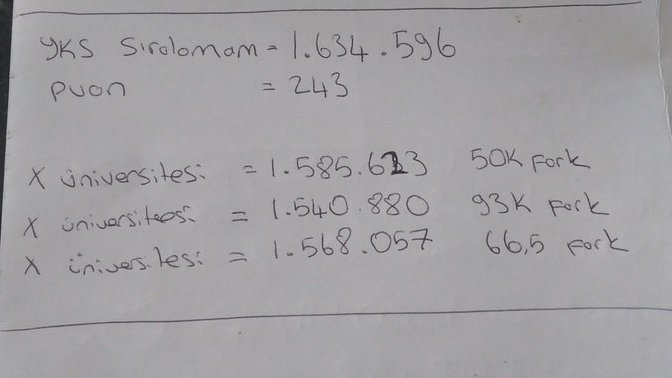 YKS Sıralamam = 1.634.596
puan = 243
X üniversitesi = 1.585.623 50K Fark
X üniversitesi = 1.540.880 93K Fark
X üniversitesi = 1.568.057 66,5 Fark